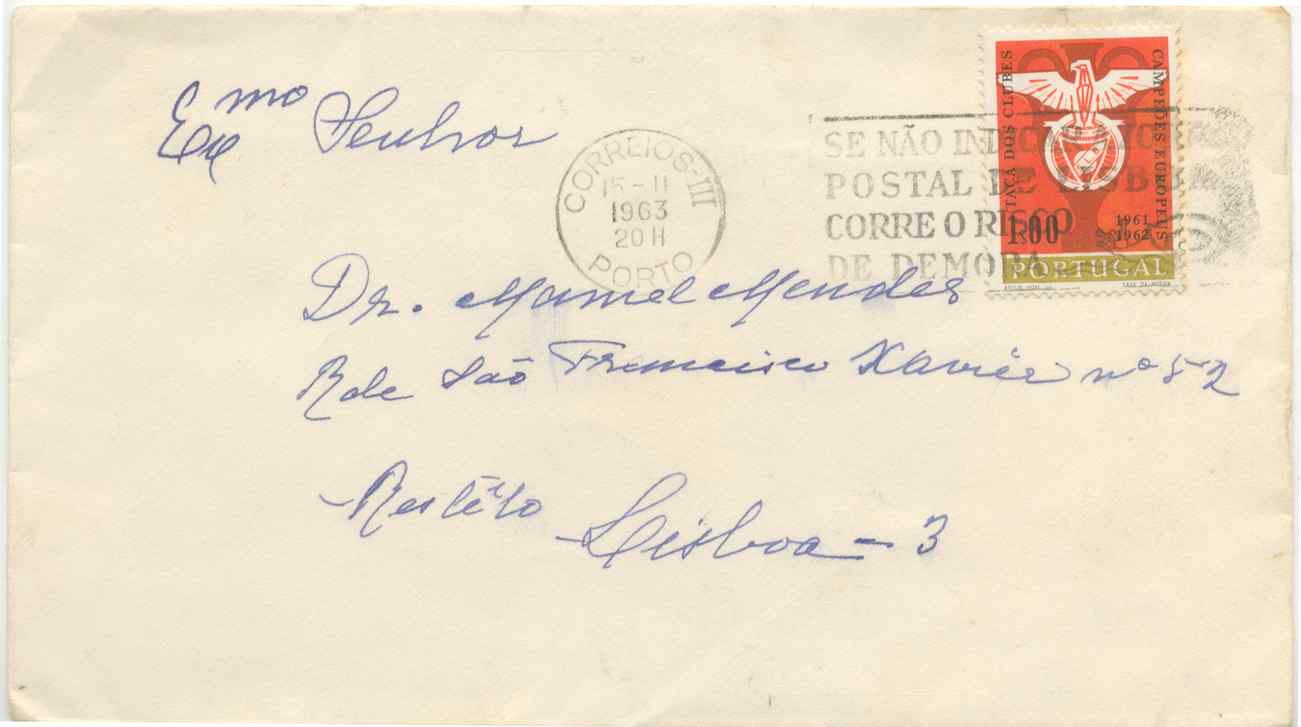 Exmo Senhor
CORREIOS-III
15-11
1963
20 H
PORTO
SE NÃO INDICAR A ZONA
POSTAL DE LISBOA
CORRE O RISCO
DE DEMORA
TAÇA DOS CLUBES
CAMPEÕES EUROPEUS
1961
1962
1$00
PORTUGAL
Dr. Manuel Mendes
R de São Francisco Xavier nº 52
Restêlo
Lisboa - 3